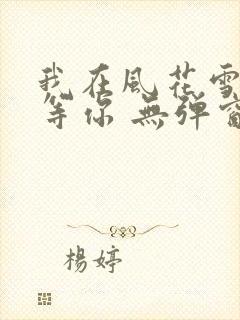 我在風花雪
等你 無彈窗
楊婷